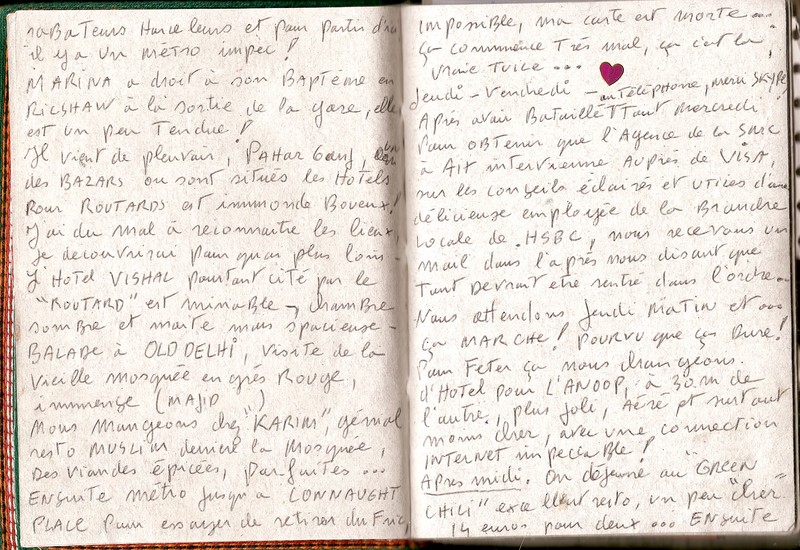 rabateurs Harceleurs et pour partir d'ici
il y a un métro impec!
MARINA a droit à son Baptême en
RICSHAW à la sortie de la gare, elle
est un peu Tendue!
Il vient de pleuvoir, PAHAR Ganj,
des BAZARS ou sont situés les Hotels
Pour ROUTARDS est immonde Boueux!
J'ai du mal à reconnaitre les lieux,
je decouvrirai pourquoi plus loin -
L'Hotel VISHAL pourtant cité par le
"ROUTARD" est minable → chambre
sombre et moite mais spacieuse -
BALADE à OLD DELHI, visite de la
vieille mosquée en grés Rouge,
immense (MAJID )
Nous mangeons chez "KARIM", génial
resto MUSLIM derrière la Mosquée,
Des viandes épicées, parfaites ...
ENsuite métro jusqu'à CONNAUGHT
PLACE Pour essayer de retirer du Fric,
impossible, ma carte est morte ...
ça commence Très mal, ça c'est la
vraie Tuile ...
Jeudi - Vendredi - au Téléphone, merci SKYPE!
Après avoir BatailléTTTant Mercredi
Pour OBTENIR que l'Agence de la SMC
à Aix intervienne Auprès de VISA,
sur les conseils éclairés et utiles d'une
délicieuse employée de la Branche
Locale de HSBC, nous recevons un
mail dans l'après nous disant que
Tout devrait etre rentré dans l'ordre...
Nous attendons Jeudi MATIN et ...
ça MARCHE! POURVU que ça Dure!
Pour Feter ça nous changeons.
d'Hotel pour L'ANOOP, à 30m de
l'autre, plus joli, Aéré et surtout
moins cher, avec une connection
INTERNET impeccable!
Après midi. On déjeune au "GREEN
CHILI" excellent resto, un peu "cher"
14 euros pour deux ... ENsuite